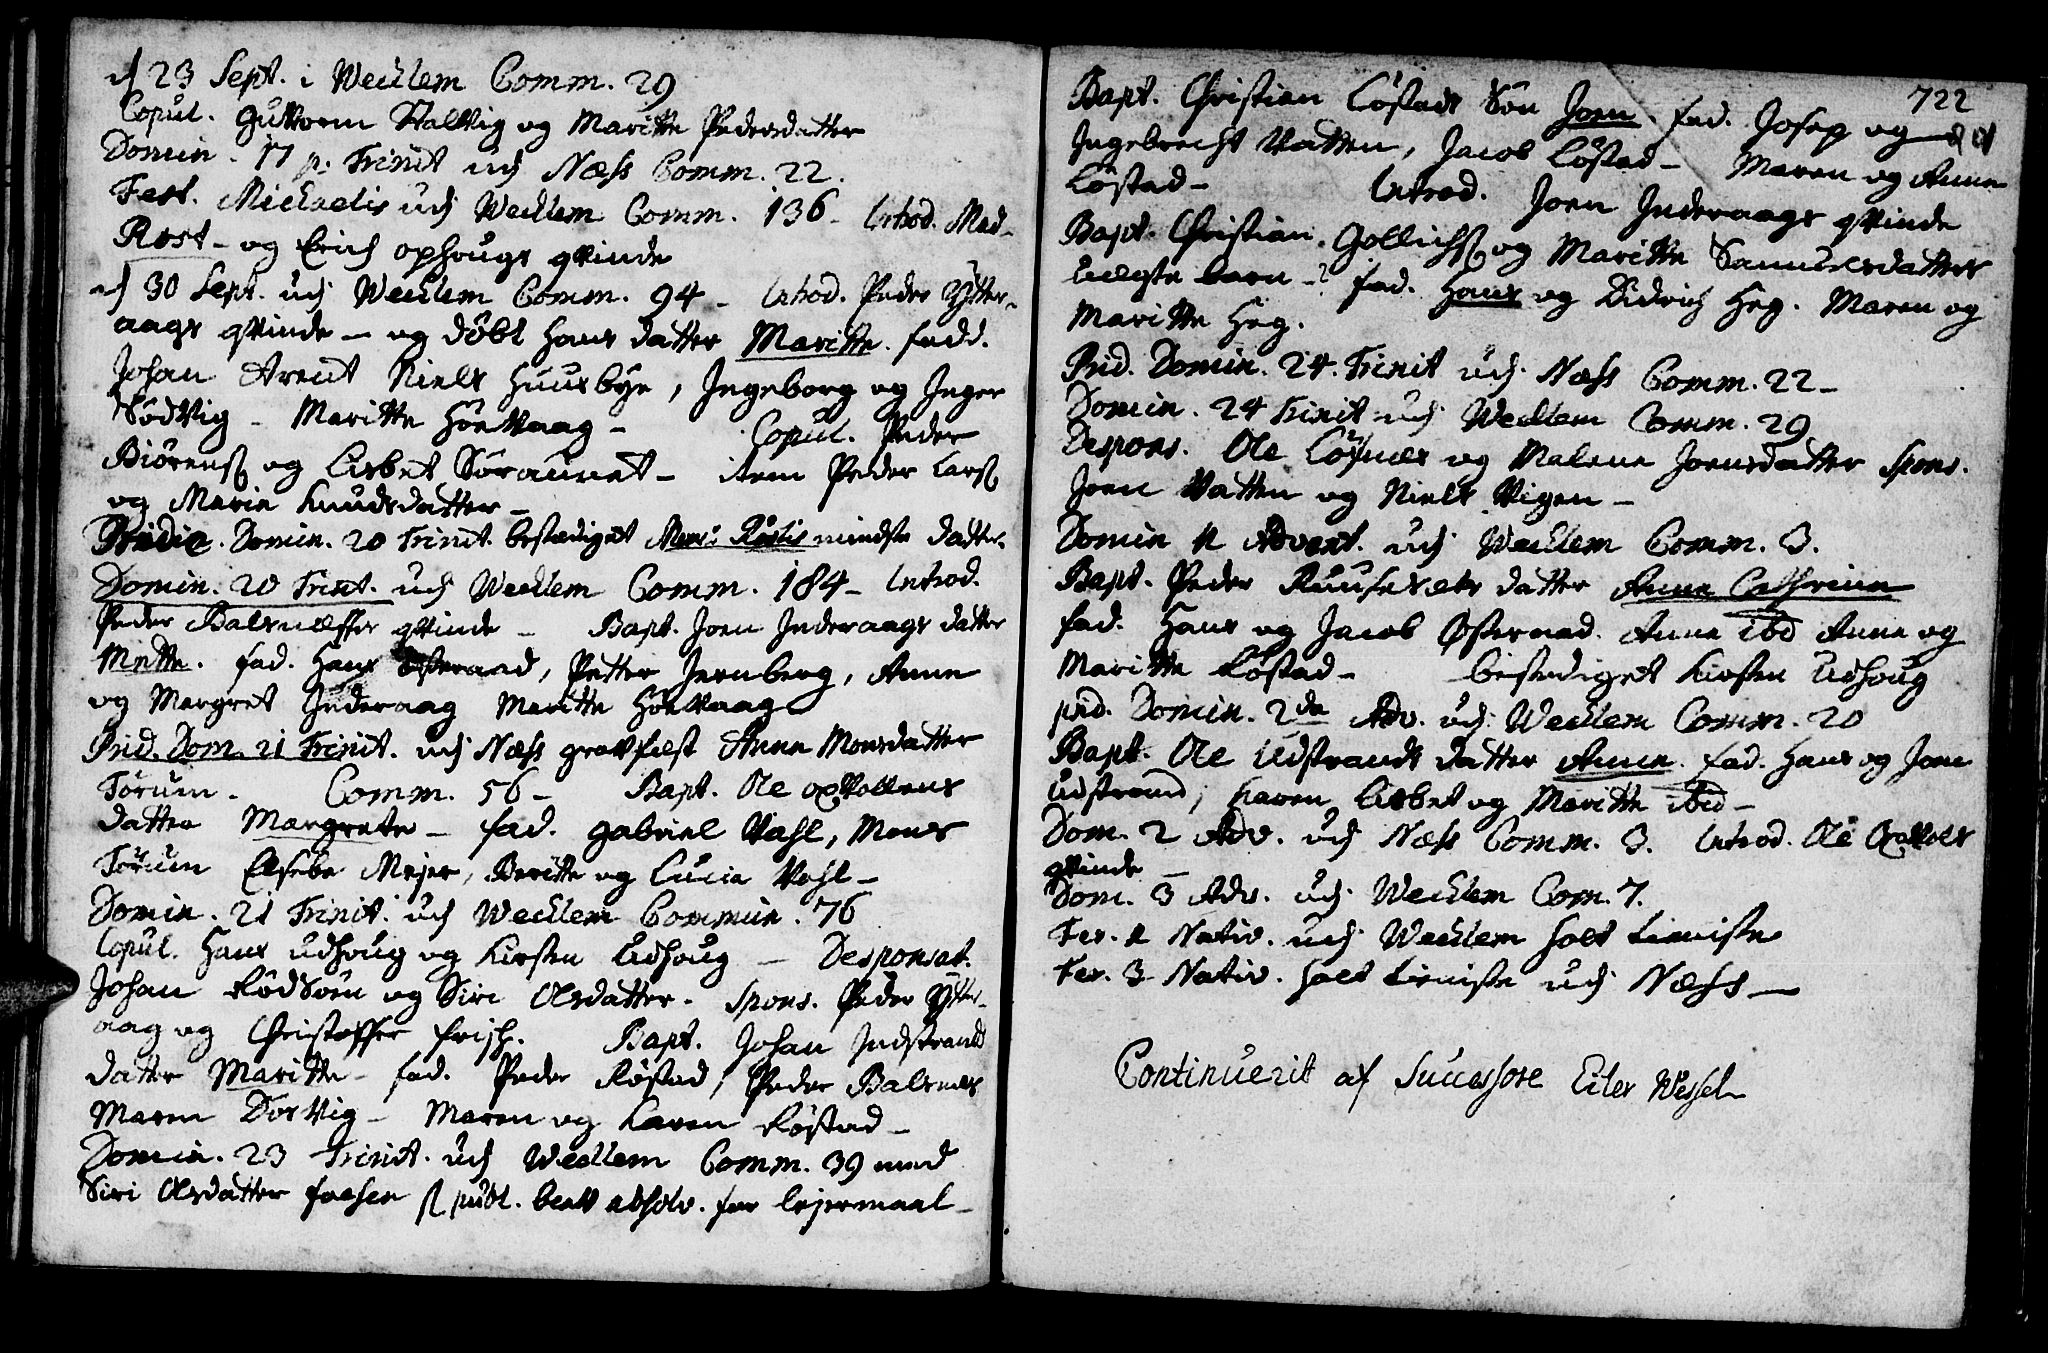 d 23 Sept. i Wecklem Comm. 29
Copul. Guttorm Stallvig og Maritte Pedersdatter
Domin. 17 p. Trinit udj Næss Comm. 22.
Fest. Michaelis udj Wecklem Comm. 136 - Introd. Mad.
Røst - og Erich ophougs qvinde
d 30 Sept. udj Wecklem Comm. 94 - Introd. Peder Ytter-
aags qvinde - og döbt hans datter Maritte. fadd.
Johan Arent Niels Huusbye, Ingeborg og Inger
Södvig - Maritte Höevaag - Copul. Peder
Biörens og Lisbet Söraunet - item Peder Lars
og Maria Knudsdatter -
Pridie. Domin. 20 Trinit. bestediget Mons: Røstis mindste datter.
Domin. 20 Trinit. udj Wecklem Comm. 184 - Introd.
Peder Balsnæsses qvinde - Bapt. Joen Inderaags datter
Mette. fad. Hans Østeraad, Petter Jernberg, Anne
og Margret Inderaag Maritte Höevaag
Prid. Dom. 21 Trinit. udj Næss gravfæst Anne Monsdatter
Törum - Comm. 56 - Bapt. Ole oxvollens
datter Margrete - fad. Gabriel Vahl, Mons
Törum Elsebe Mejer, Beritte og Lucia Vahl -
Domin. 21 Trinit. udj Wecklem Commun. 76
Copul. Hans udhoug og Kirsten Udhoug - Desponsat.
Johan Rödsöen og Siri Olsdatter. Spons. Peder Ytter-
aag og Christopher frisch. Bapt. Johan Indstrands
datter Maritte - fad. Peder Røstad, Peder Balsnes
Maren Dorvig - Maren og Karen Røstad -
Domin. 23 Trinit. udj Wecklem Comm. 39 med
Siri Olsdatter publ. blev absolv. for lejermaal -
722
Bapt. Christian Löstads Sön Joen. fad. Josep og
Ingebrecht Vatten, Jacob Löstad - Maren og Anne
Löstad - Introd. Joen Inderaags qvinde
Bapt. Christian Gollichs og Maritte Samuelsdatters
uægte barn - fad. Hans og Didrich Heg. Maren og
Maritte Heg.
Prid. Domin. 24. Trinit udj Næss Comm. 22 -
Domin. 24 Trinit udj Wecklem Comm. 29
Despons. Ole og Malene Joensdatter Spons.
Joen Vatten og Niels Vigen -
Domin 1 Advent. udj Wecklem Comm. 3.
Bapt. Peder datter Anne Cathrina
fad. Hans og Jacob Østeraad. Anne ibid Anne og
Maritte Røstad - bestediget Kirsten Udhoug
prid. Domin. 2da Adv. udj Wecklem Comm. 20
Bapt. Ole Udstrands datter Anne. fad. Hans og Joen
Udstrand, Karen Lisbet og Maritte ibid -
Dom. 2 Adv. udj Næss Comm. 3. Introd. Ole Oxvols
qvinde -
Dom. 3 Adv. udj Wecklem Com. 7.
Fer. 1 Nativ. udj Wecklem holt tieniste
Fer. 3 Nativ. holt tieniste udj Næss -
Continuerit af Successore Eiler Wessel